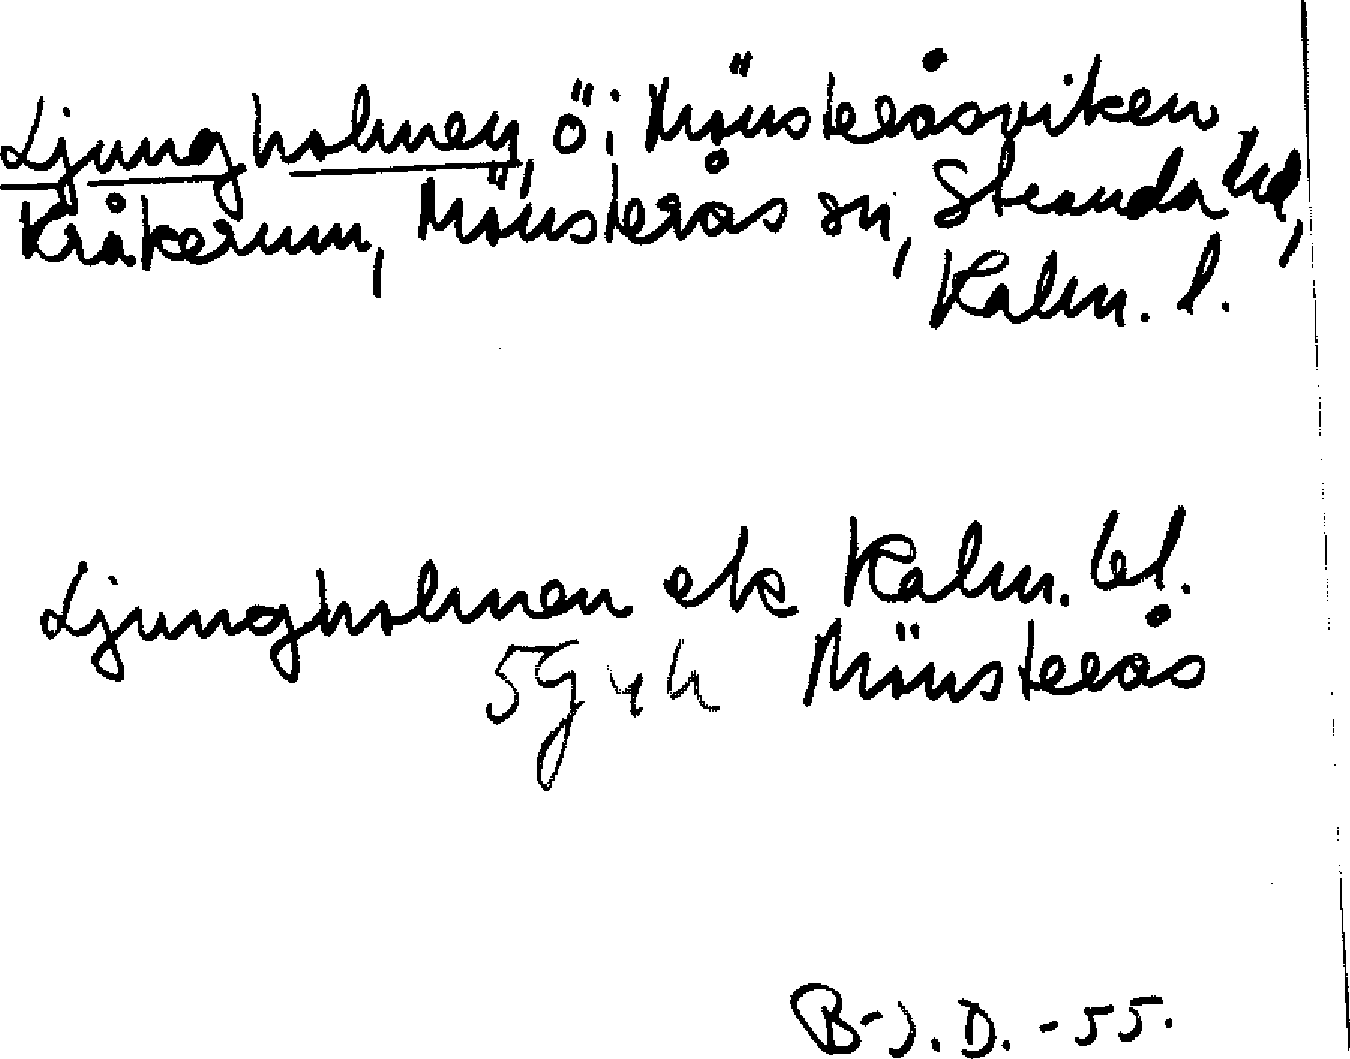 Ljungholmen, ö i Mönsteråsviken,
Kråkerum, Mönsterås sn, Stranda hd,
Kalm. l.
Ljungholmen ek Kalm. bl.
5G 4h Mönsterås
B-J. D. -55.